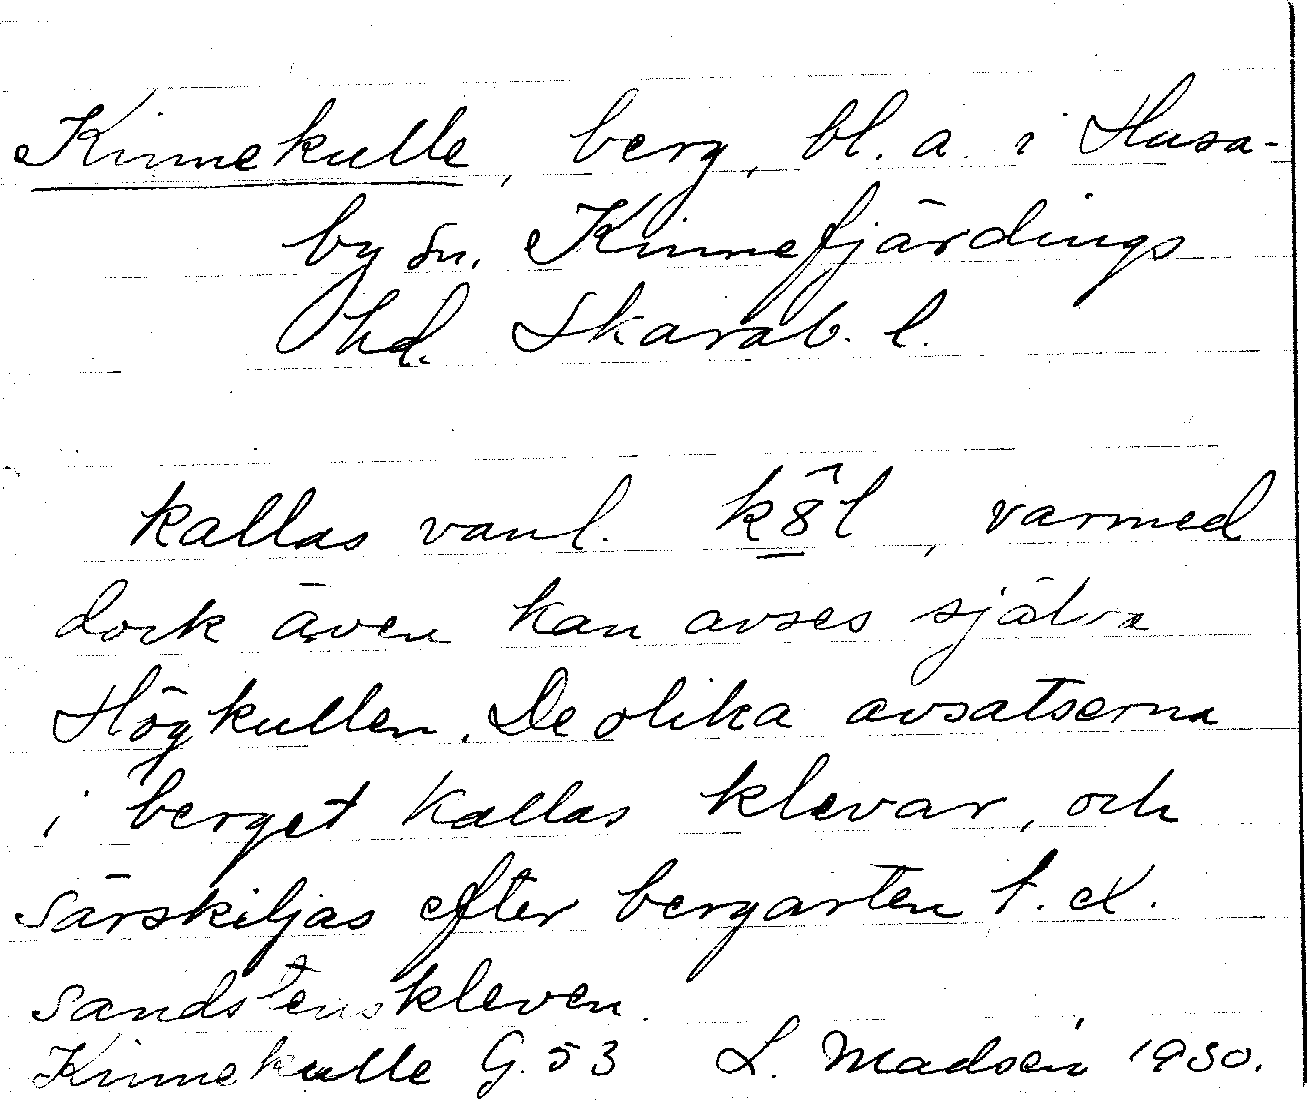 Kinnekulle, berg, bl. a. i Husa-
by sn. Kinnefjärdings
hd. Skarab. l.
kallas vanl. k8̂l, varmed
dock även kan avses själva
Högkullen. De olika avsatserna
i berget kallas klevar, och
särskiljas efter bergarten t. ex.
sandstenskleven.
Kinnekulle G. 53 L. Madsén 1930.